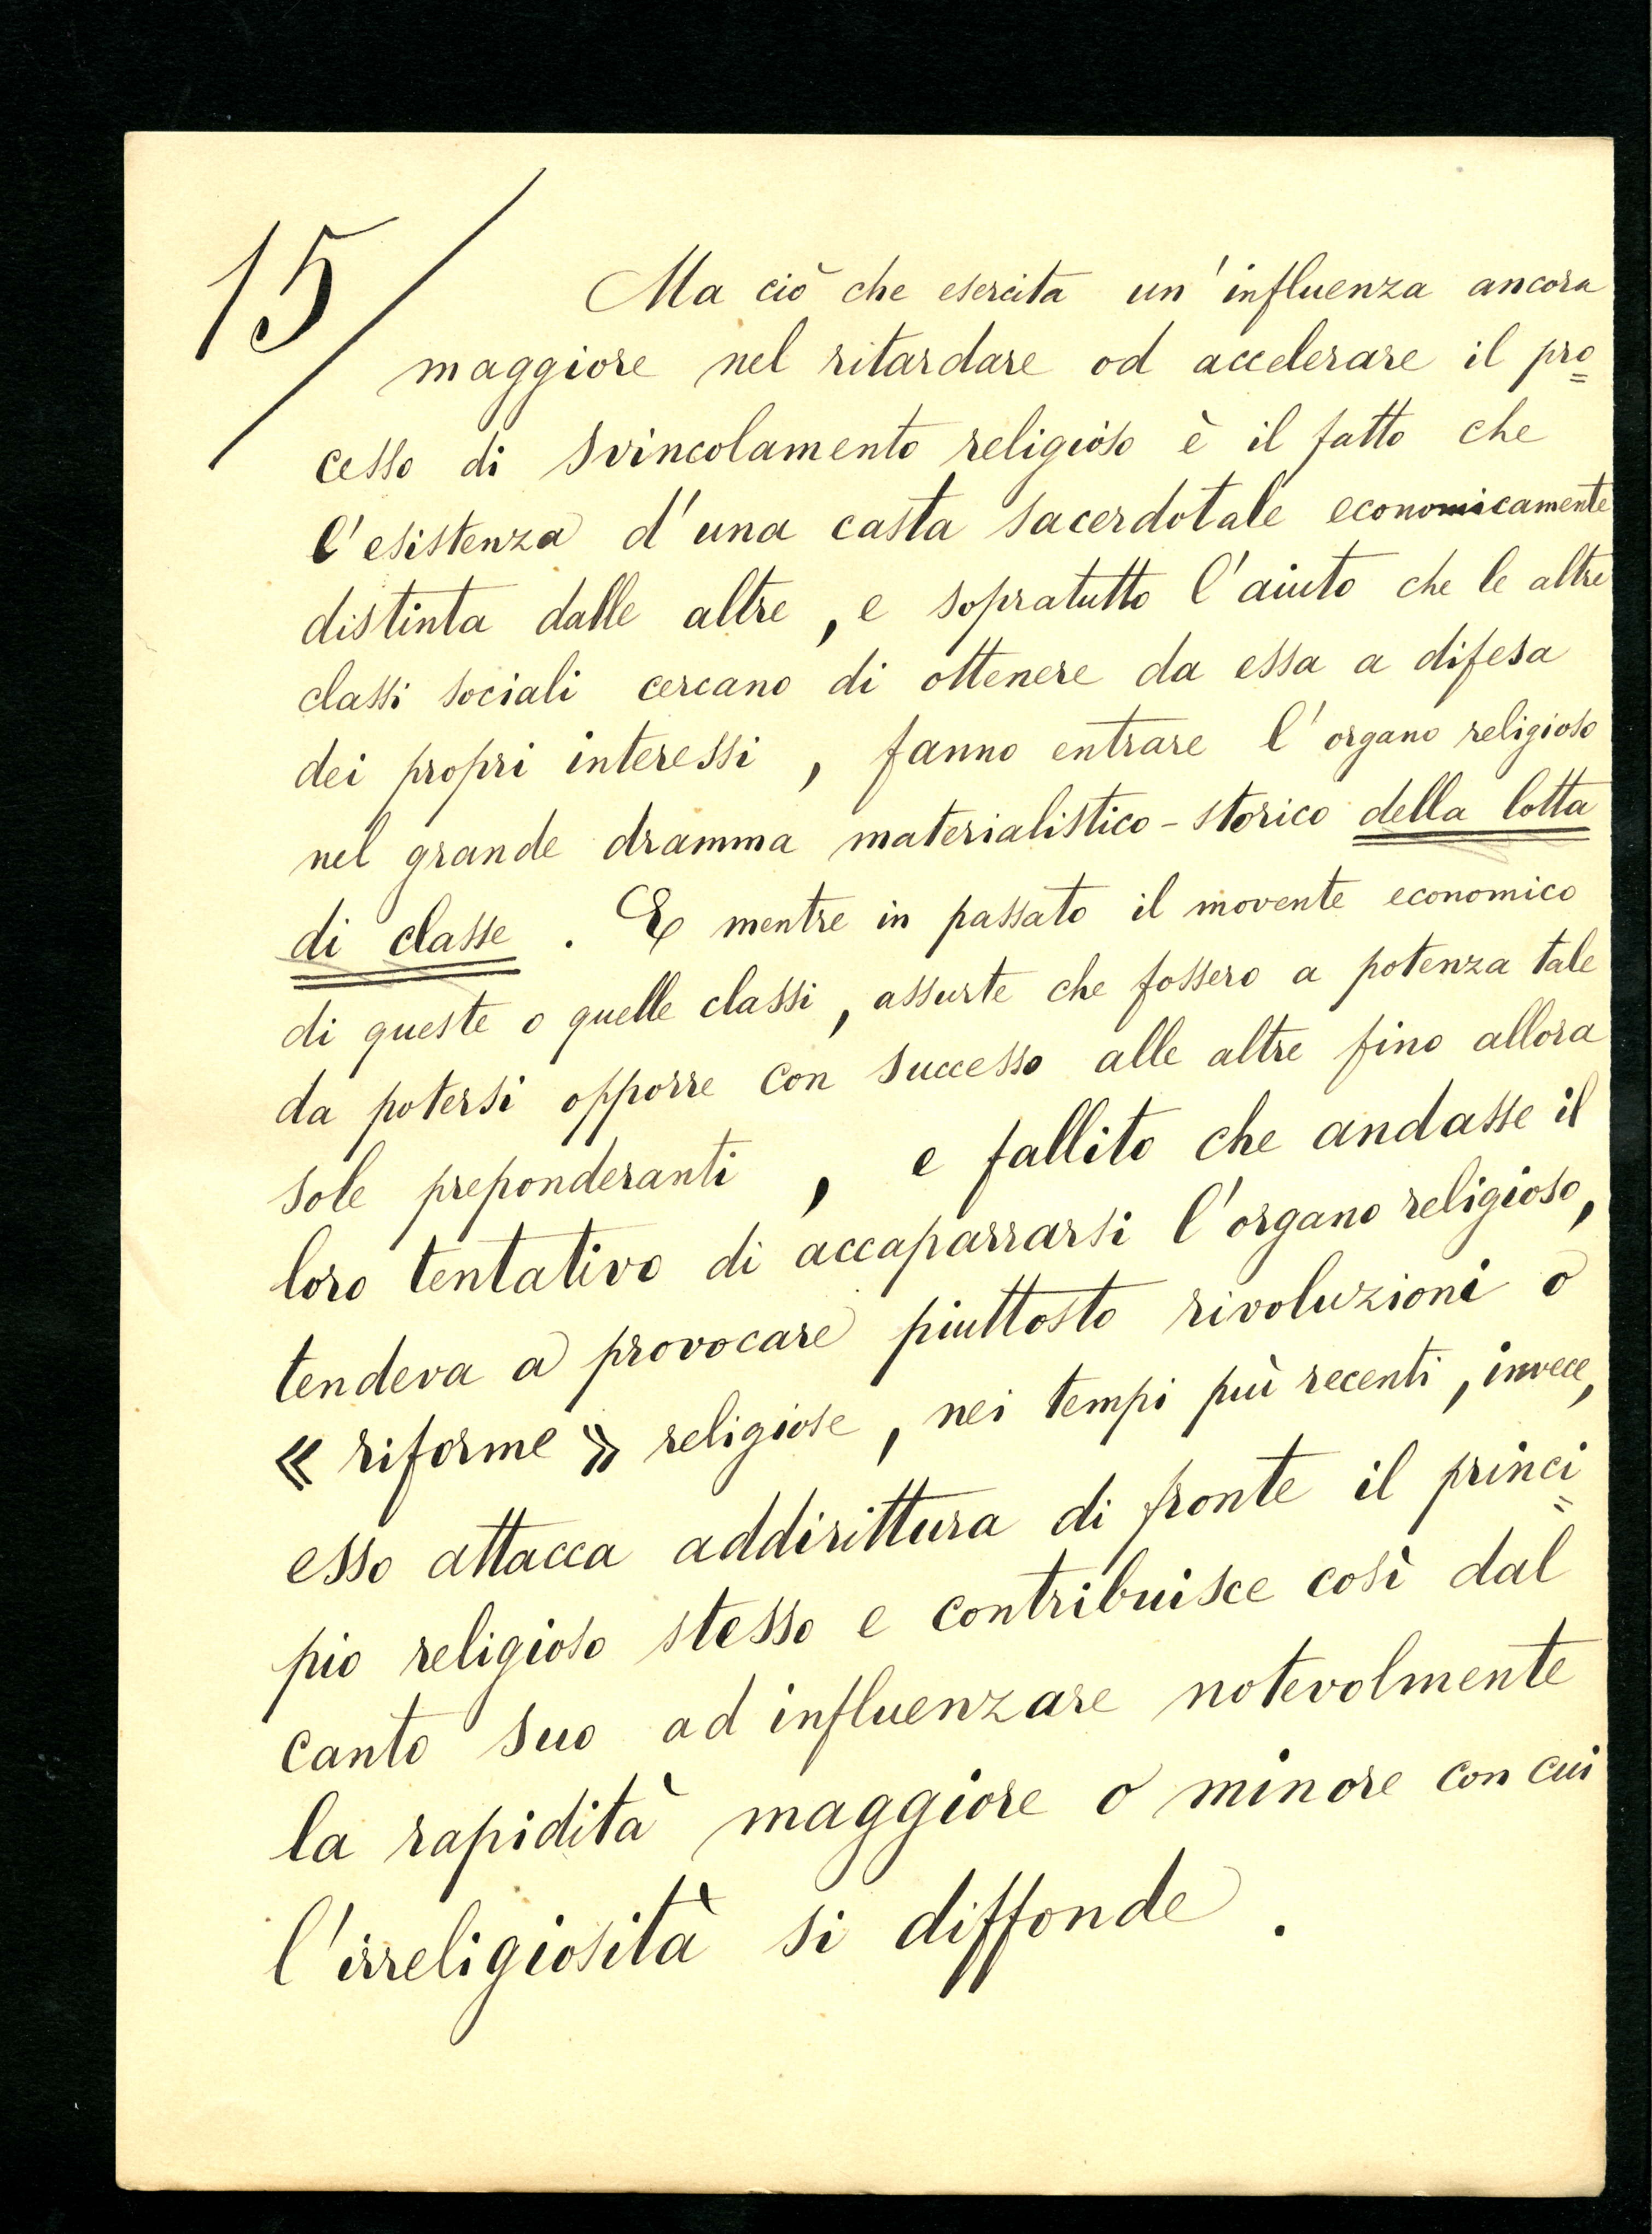 15/
Ma ciò che esercita un'influenza ancora
maggiore nel ritardare od accelerare il pro=
cesso di svincolamento religioso è il fatto che
l'esistenza d'una casta sacerdotale economicamente
distinta dalle altre, e sopratutto l'aiuto che le altre
classi sociali cercano di ottenere da essa a difesa
dei propri interessi, fanno entrare l'organo religioso
nel grande dramma materialistico-storico della lotta
di classe. E mentre in passato il movente economico
di queste o quelle classi, assurte che fossero a potenza tale
da potersi opporre con successo alle altre fino allora
sole preponderanti, e fallito che andasse il
loro tentativo di accaparrarsi l'organo religioso,
tendeva a provocare piuttosto rivoluzioni o
« riforme » religiose, nei tempi più recenti, invece,
esso attacca addirittura di fronte il princi=
pio religioso stesso e contribuisce così dal
canto suo ad influenzare notevolmente
la rapidità maggiore o minore con cui
l'irreligiosità si diffonde.